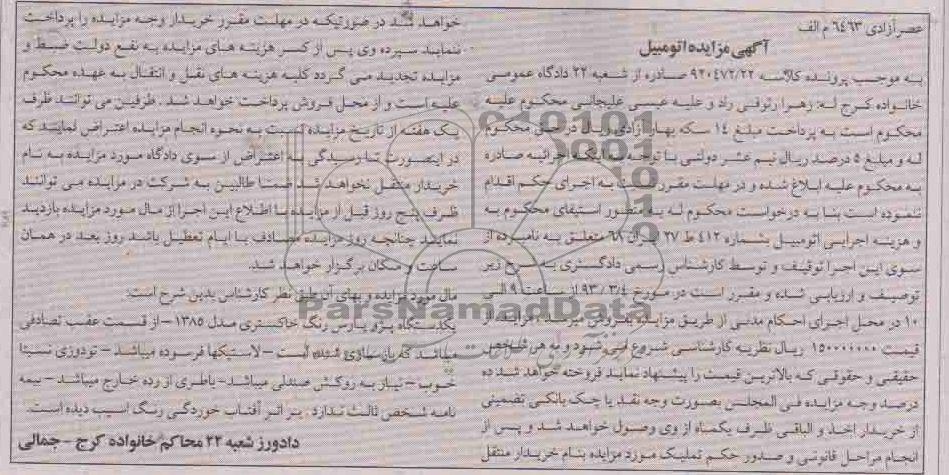 عصر آزادی ۶۴۶۳ م الف
آگهی مزایده اتومبیل
به موجب پرونده کلاسه ۹۲۰۴۷۲/۲۲ صادره از شعبه ۲۲ دادگاه عمومی
خانواده کرج له: زهرا رئوفی راد و علیه عیسی علیجانی محکوم علیه
محکوم است به پرداخت مبلغ ۱۴ سکه بهار آزادی ریال در حق محکوم
له و مبلغ ۵ درصد ریال نیم عشر دولتی با توجه به اینکه اجرائیه صادره
به محکوم علیه ابلاغ شده و در مهلت مقرر نسبت به اجرای حکم اقدام
ننموده است بنا به درخواست محکوم له به منظور استیفای محکوم به
و هزینه اجرایی اتومبیل بشماره ۴۱۲ ط ۲۷ ایران ۶۸ متعلق به نامبرده از
سوی این اجرا توقیف و توسط کارشناس رسمی دادگستری به شرح زیر
توصیف و ارزیابی شده و مقرر است در مورخ ۹۳/۰۳/۴ از ساعت ۹ الی
۱۰ در محل اجرای احکام مدنی از طریق مزایده بفروش میرسد. مزایده از
قیمت ۱۵۰۰۰۰۰۰۰ ریال نظریه کارشناسی شروع می شود و به هر شخص
حقیقی و حقوقی که بالاترین قیمت را پیشنهاد نماید فروخته خواهد شد ده
درصد وجه مزایده فی المجلس بصورت وجه نقد یا چک بانکی تضمینی
از خریدار اخذ و الباقی ظرف یکماه از وی وصول خواهد شد و پس از
انجام مراحل قانونی و صدور حکم تملیک مورد مزایده بنام خریدار منتقل
خواهد شد در صورتیکه در مهلت مقرر خریدار وجه مزایده را پرداخت
ننماید سپرده وی پس از کسر هزینه های مزایده به نفع دولت ضبط و
مزایده تجدید می گردد کلیه هزینه های نقل و انتقال به عهده محکوم
علیه است و از محل فروش پرداخت خواهد شد. طرفین می توانند ظرف
یک هفته از تاریخ مزایده نسبت به نحوه انجام مزایده اعتراض نمایند که
در اینصورت تا رسیدگی به اعتراض از سوی دادگاه مورد مزایده به نام
خریدار منتقل نخواهد شد ضمنا طالبین به شرکت در مزایده می توانند
ظرف پنج روز قبل از مزایده با اطلاع این اجرا از مال مورد مزایده بازدید
نمایند چنانچه روز مزایده مصادف با ایام تعطیل باشد روز بعد در همان
ساعت و مکان برگزار خواهد شد.
مال مورد مزایده و بهای آن طبق نظر کارشناس بدین شرح است:
یکدستگاه پژو پارس رنگ خاکستری مدل ۱۳۸۵ - از قسمت عقب تصادفی
میباشد که بازسازی شده است - لاستیکها فرسوده میباشد - تودوزی نسبتا
خوب - نیاز به روکش صندلی میباشد - باطری از رده خارج میباشد - بیمه
نامه شخص ثالث ندارد. بر اثر آفتاب خوردگی رنگ آسیب دیده است.
دادورز شعبه ۲۲ محاکم خانواده کرج - جمالی
ParsNamadData